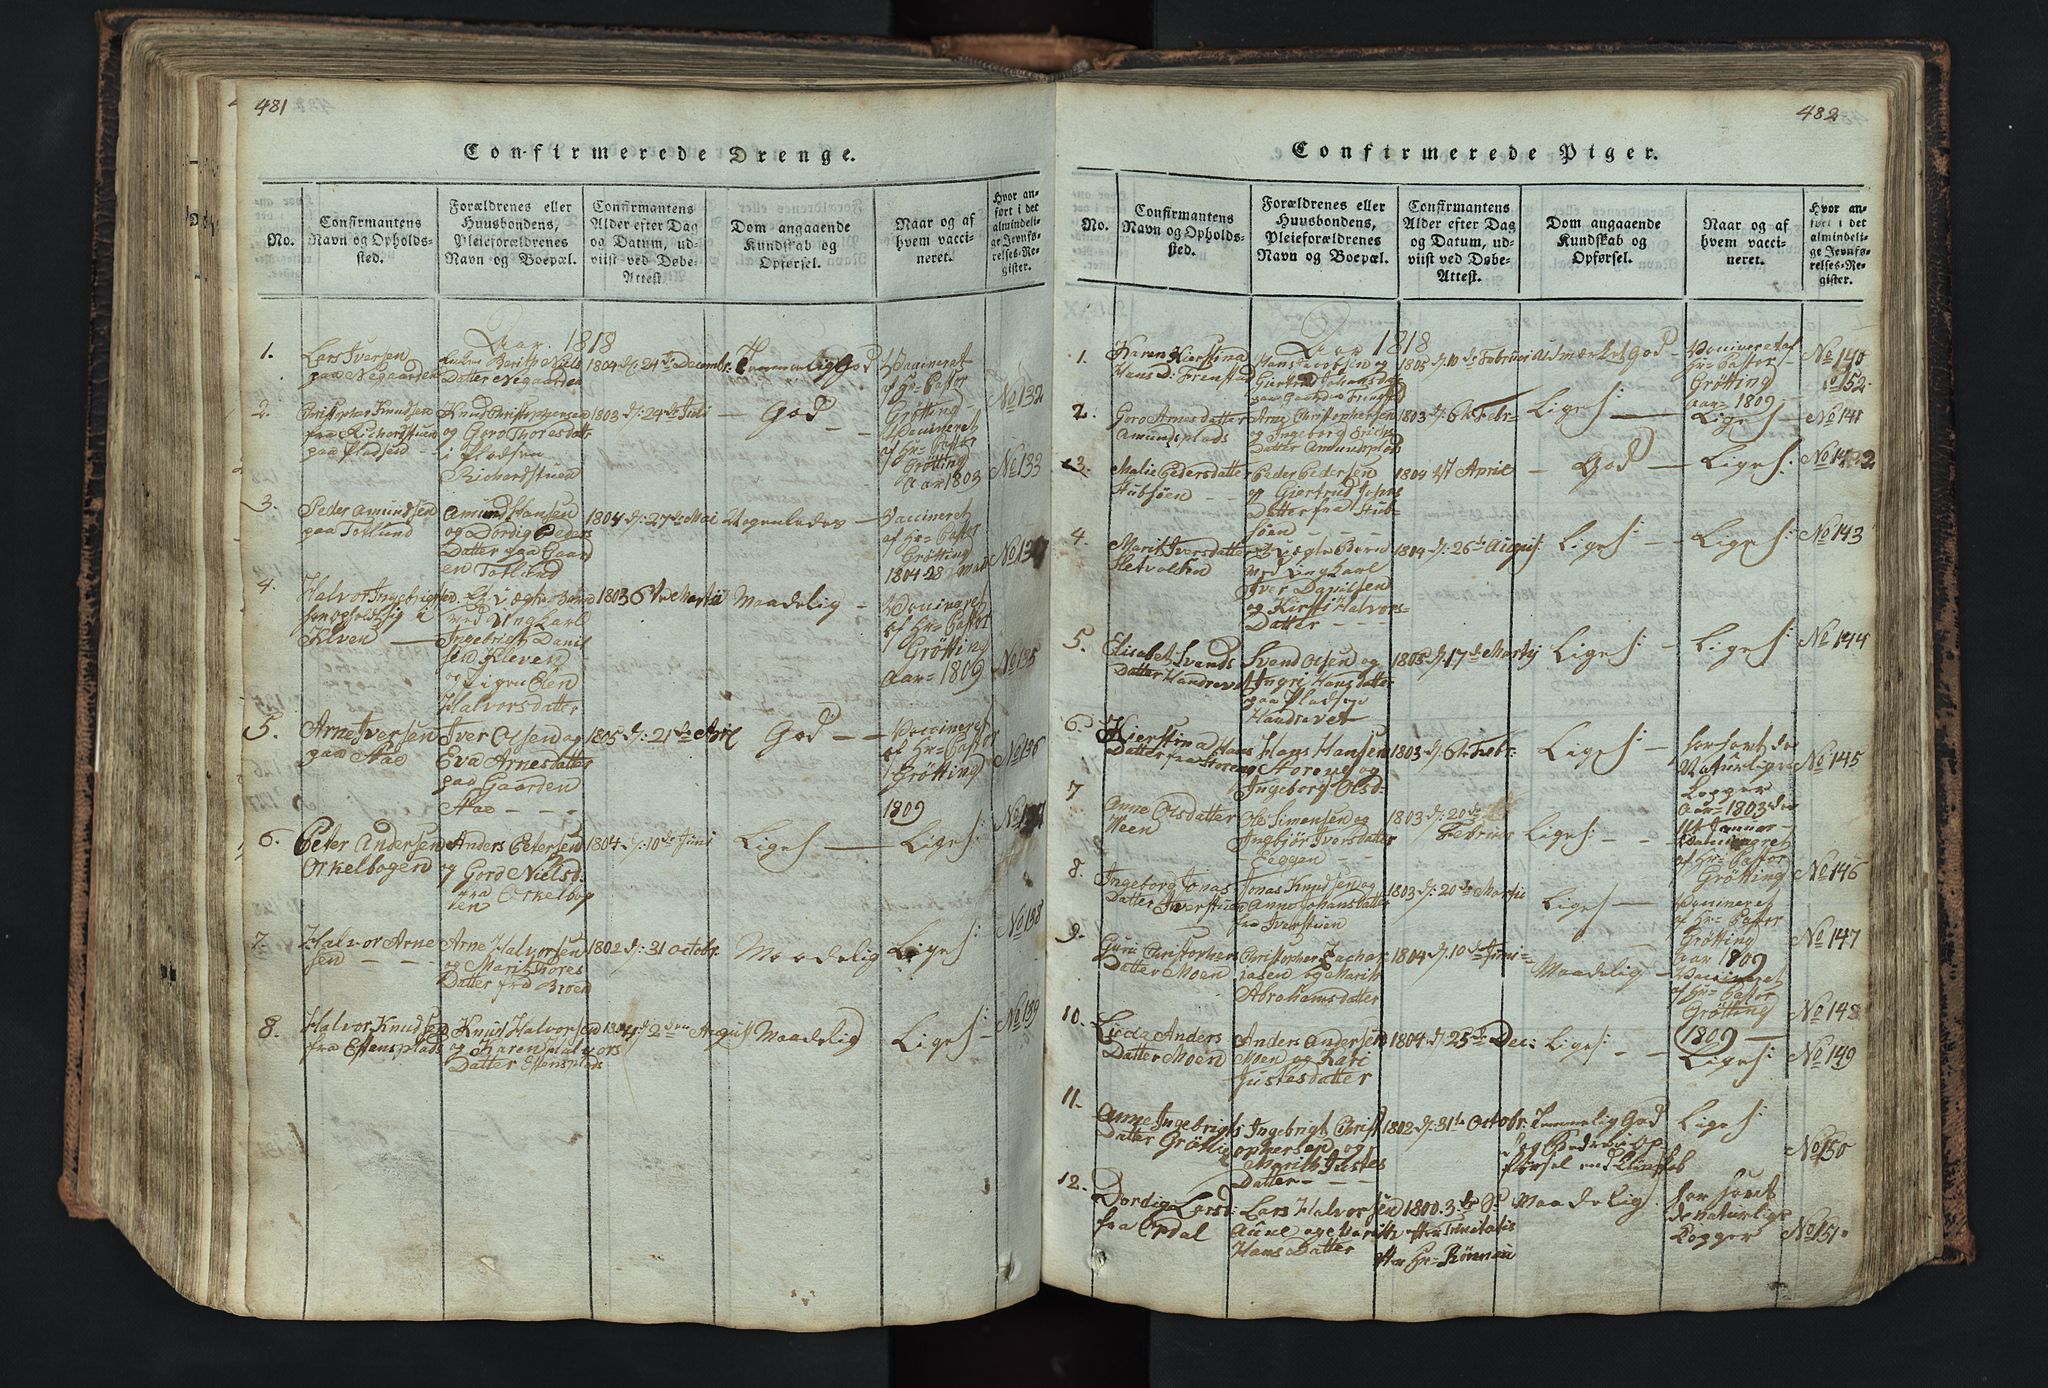 481
Confirmerede Drenge.
No.
Confirmantens
Navn og Opholds-
sted.
Forældrenes eller
Huusbondens,
Pleieforældrenes
Navn og Boepæl.
Confirmantens
Alder efter Dag
og Datum, ud-
viist ved Døbe-
Attest.
Dom angaaende
Kundskab og
Opførsel.
Naar og af
hvem vacci-
neret.
Hvor an-
ført i det
almindeli-
ge Jevnfø-
relses-Re-
gister.
Aar 1818
1.
Lars Iversen
paa Negaarden
Berith Niels
Datter Negaarden
1804 d: 24de Decembr.
Temmelig God
Vaccineret
af Hr: Pastor
Grötting
No 132
2.
Christopher Knudsen
fra Richardstuen
paa Pladsen
Knud Christophersen
og Goro Thoresdatt:
i Pladsen
Richardstuen
1803 d: 24de Juli
God
Vaccineret
af Hr: Pastor
Grötting
Aar 1803
No 133
3.
Peder Amundsen
paa Totlund
Amund Hansen
og Dordig Peders
Datter paa Gaard
en Totlund
1804 d: 27de Mai
Ustenledes
Vaccineret
af Hr: Pastor
Grötting
1804 28 Mai
4.
Halvor Ingebrigtsen
som opholdt sig i
Kleven
Et uægte Barn
med Ungkarl
Ingebrigt Daniel
sen Kleven
og Pigen Elen
Halvorsdatter
1803 6te Martii
Maadelig
Vaccineret
af Hr: Pastor
Grötting
Aar 1809
No 135
5.
Arne Iversen
paa Aae
Iver Olsen og
Eva Arnesdatter
paa Gaarden
Aae
1805 d: 21de April
God
Vaccineret
af Hr: Pastor
Grötting
1809
No 136
6.
Peter Andersen
Orkelbogen
Anders Petersen
og Gord Nielsd:
fra Orkelbog
en
1804 d: 10de Juni
Liges:
Liges:
No 137
7.
Halvor Arne
sen
Arne Halvorsen
og Marit Thores
Datter fra Broen
1802 d: 31 Octobr.
Maadelig
Liges:
No 138
8.
Halvor Knudsen
fra Effensplads
Knud Halvorsen
og Karen Halvors
Datter Effensplads
1804 d: 2den August
Maadelig
Liges:
No 139
482
Confirmerede Piger.
No.
Confirmantens
Navn og Opholds-
sted.
Forældrenes eller
Huusbondens,
Pleieforældrenes
Navn og Boepæl.
Confirmantens
Alder efter Dag
og Datum, ud-
viist ved Døbe-
Attest.
Dom angaaende
Kundskab og
Opførsel.
Naar og af
hvem vacci-
neret.
Hvor an-
ført i det
almindeli-
ge Jevnfø-
relses-Re-
gister.
Aar 1818
1.
Karen Kierstina
Hans D: Frenstad
Hans Jacobsen og
Giertrud Johansdatter
paa Gaarden Frenstad
1805 d: 10de Februar
Udmærket God
Vaccineret af
Hr: Pastor
Grötting
Aar 1809
No 140
No 152
2.
Goro Arnesdatter
Amundsplads
Arne Christophersen
og Ingeborg Erichs
Datter Amundsplads
1803 d: 6te Febr
Liges:
Liges:
No 141
3.
Malie Pedersdatter
Stubsöen
Peder Pedersen
og Giertrud Johns
Datter fra Stub
söen
1804 1st April
God
Liges:
No 142
4.
Marit Iversdatter
Et uægte Barn
med Ungkarl
Iver Danielsen
og Kirsti Halvors
Datter
1804 d: 26de August
Liges:
Liges:
No 143
5.
Elisabet Svends
Datter Handrevet
Svend Olsen og
Ingri Hansdatter
paa Pladsen
Handrevet
1805 d: 17de Martij
Liges:
Liges:
No 144
6.
Kierstina Hans
Datter fra Storeng
Hans Hansen
Storeng og
Ingeborg Olsd:
1803 d: 6te Febr:
Liges:
har havt de
Naturlige
Kopper
No 145
7
Anne Olsdatter
Meen
Ole Simensen og
Ingbjör Iversdatter
Eggen
1803 d: 20de
Februar
Liges:
Aar 1803 den
1st Januar
Vaccineret
af Hr: Pastor
Grötting
No 146
8.
Ingeborg Jonas
Datter Iverstuen
Jonas Knudsen og
Anne Johansdatter
fra Iverstuen
1803 d: 20de Martii
Liges:
Vaccineret
af Hr: Pastor
Grötting
Aar 1809
No 147
9.
Guru Christopher
Datter Moen
Christopher Zachar
iasen og Marith
Abrahamsdatter
1804 d: 10de Juni
Maadelig
Vaccineret
af Hr: Pastor
Grötting
1809
No 148
10.
Anders
Datter Moen
Anders Andersen
Moen og Kari
Justesdatter
1804 d: 25de Dec:
Liges:
Liges:
No 149
11.
Anne Ingebrigts
Datter Grötting
Ingebrigt Christ
ophersen og
Marith Justes
Datter
1802 d: 31te Octobr.
Temmelig God
Liges:
No 150
12.
Dordig Larsd:
fra Ordal
Lars Halvorsen
Aune og Marit
Hans Datter
1800 3de S
efter Trinitatis
efter Hr: Rönnau
Maadelig
har havt
de naturlige
Kopper
No 151